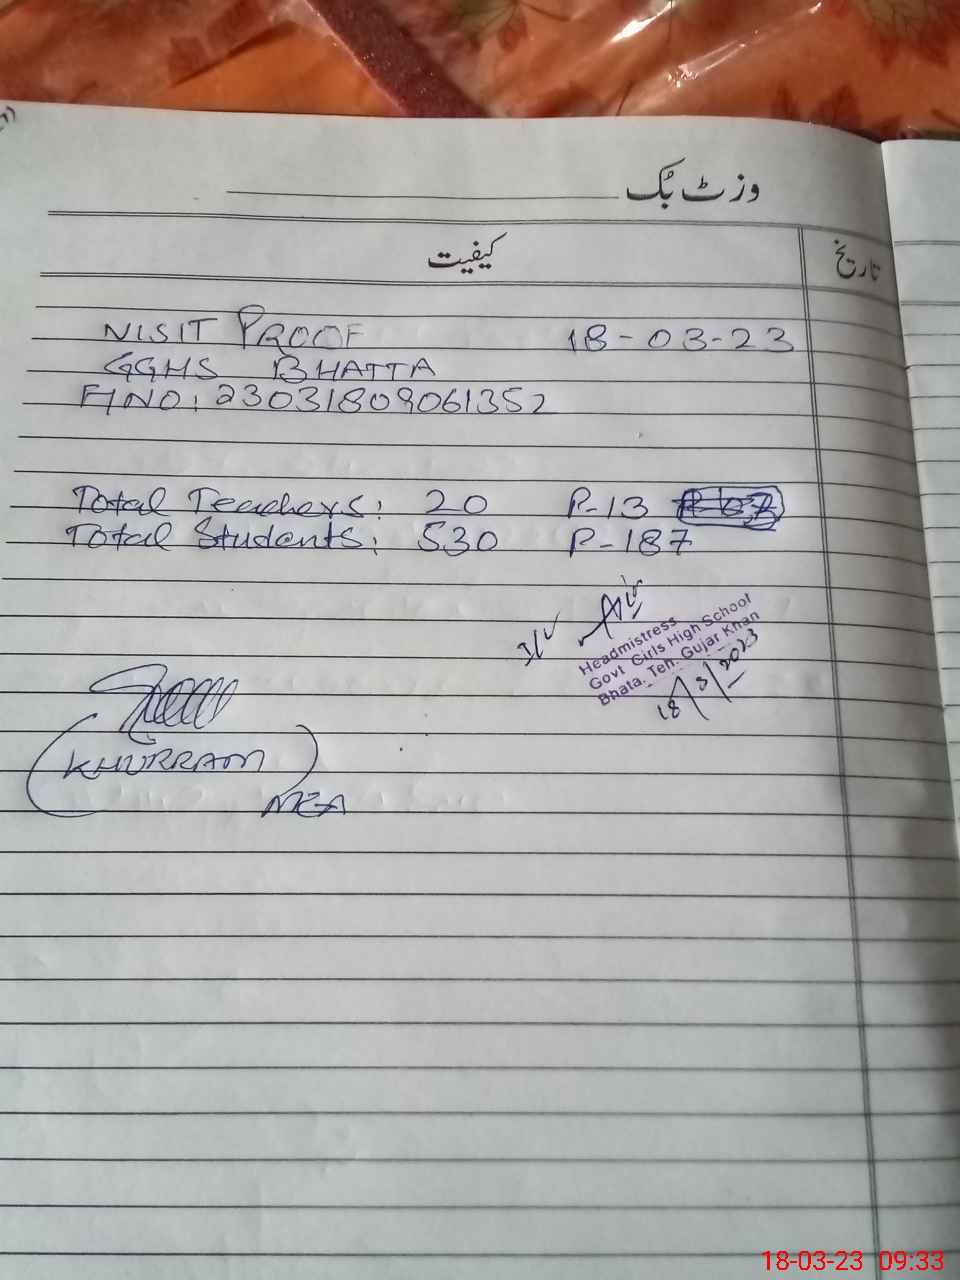 وزٹ بُک
کیفیت تاریخ
VISIT PROOF 18-03-23
GGHS BHATTA
FINO: 23031809061352
Total Teachers: 20 P-13
Total Students: 530 P-187
Headmistress
Govt Girls High School
Bhata. Teh. Gujar Khan
18/3/2023
(KHURRAM)
MEA
18-03-23 09:33